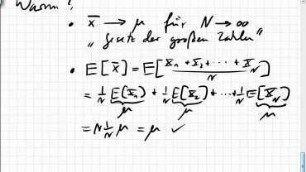 Warum?
• x̄ → μ für N → ∞
„Gesetz der großen Zahlen"
• E[x̄] = E[(X₁ + X₂ + ⋯ + X_N)/N]
= 1/N E[X₁] + 1/N E[X₂] + ⋯ + 1/N E[X_N]
μ μ μ
= N 1/N μ = μ ✓